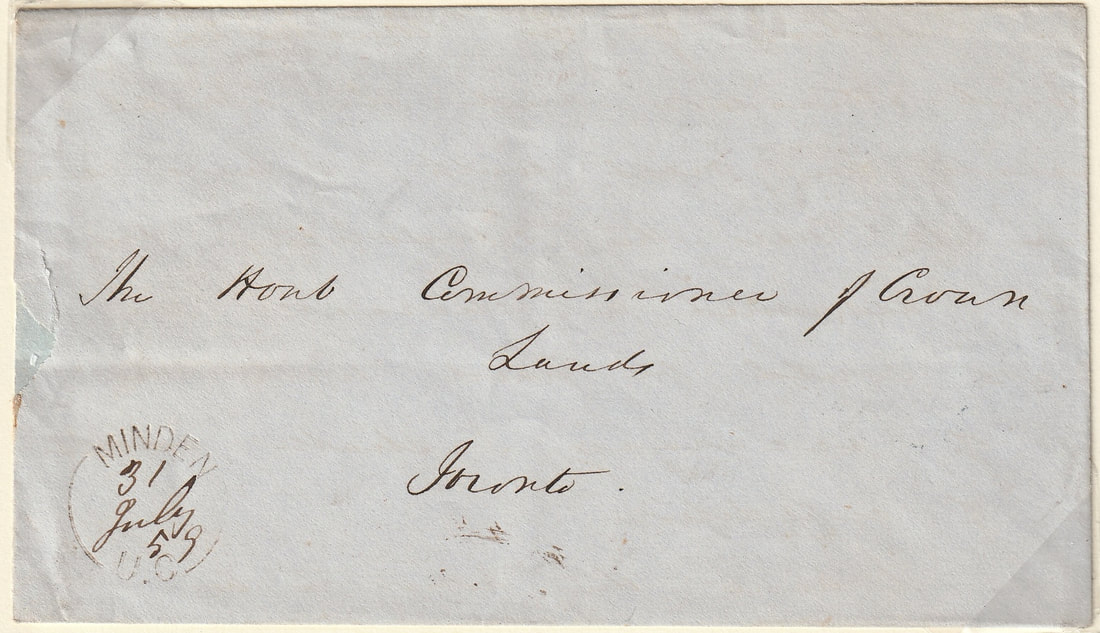 The Honb Commissioner of Crown
Lands
Toronto.
MINDEN
31
July
59
U.C